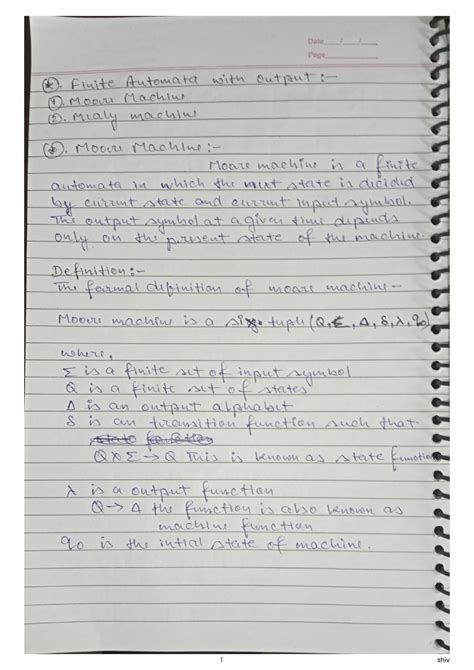 Date___/___/___
Page___
(*). Finite Automata with output :-
(1). Moore Machine
(2). Mealy machine
(*). Moore Machine :-
Moore machine is a finite
automata in which the next state is decided
by current state and current input symbol.
The output symbol at a given time depends
only on the present state of the machine.
Definition :-
The formal definition of moore machine -
Moore machine is a six tuple (Q, Σ, Δ, δ, λ, q0)
where,
Σ is a finite set of input symbol
Q is a finite set of states
Δ is an output alphabet
δ is an transition function such that
Q X Σ → Q This is known as state function
λ is a output function
Q → Δ the function is also known as
machine function
q0 is the intial state of machine.
1
shiv